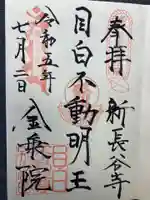 奉拝 新長谷寺
目白不動明王
令和五年
七月二日
金乗院